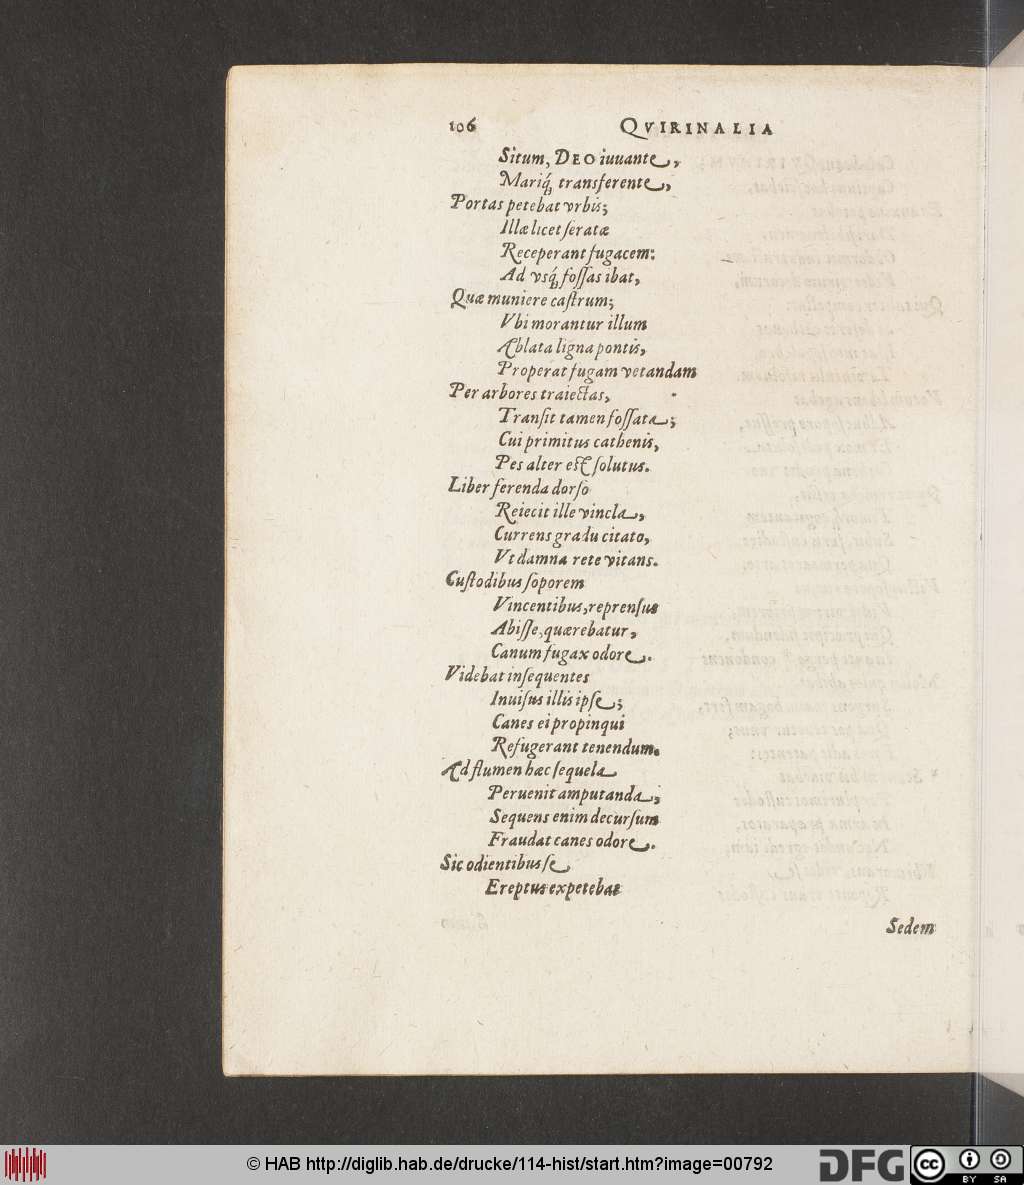 106 QVIRINALIA
Situm, DEO iuuante,
Mariq́; transferente,
Portas petebat vrbis;
Illæ licet seratæ
Receperant fugacem:
Ad vsq́; fossas ibat,
Quæ muniere castrum;
Vbi morantur illum
Ablata ligna pontis,
Properat fugam vetandam
Per arbores traiectas,
Transit tamen fossata;
Cui primitus cathenis,
Pes alter est solutus.
Liber ferenda dorso
Reiecit ille vincla,
Currens gradu citato,
Vt damna rete vitans.
Custodibus soporem
Vincentibus, reprensus
Abisse, quærebatur,
Canum fugax odore.
Videbat insequentes
Inuisus illis ipse;
Canes ei propinqui
Refugerant tenendum.
Ad flumen hæc sequela
Peruenit amputanda;
Sequens enim decursum
Fraudat canes odore.
Sic odientibus se
Ereptus expetebat
Sedem
© HAB http://diglib.hab.de/drucke/114-hist/start.htm?image=00792
DFG
cc
BY SA